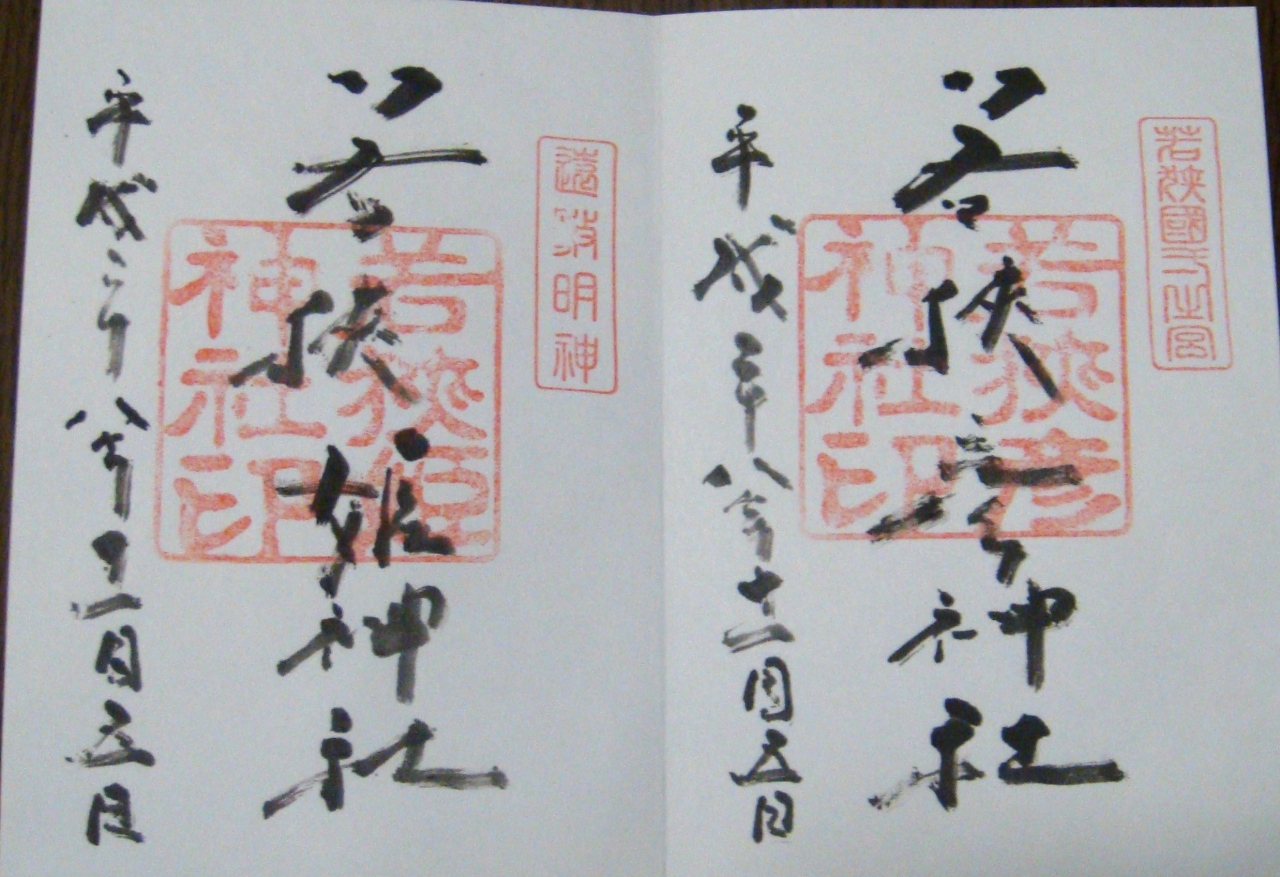 若狹國一之宮
若狹彦
神社印
若狭彦神社
平成二十八年十一月五日
遠敷明神
若狹姫
神社印
若狭姫神社
平成二十八年十一月五日